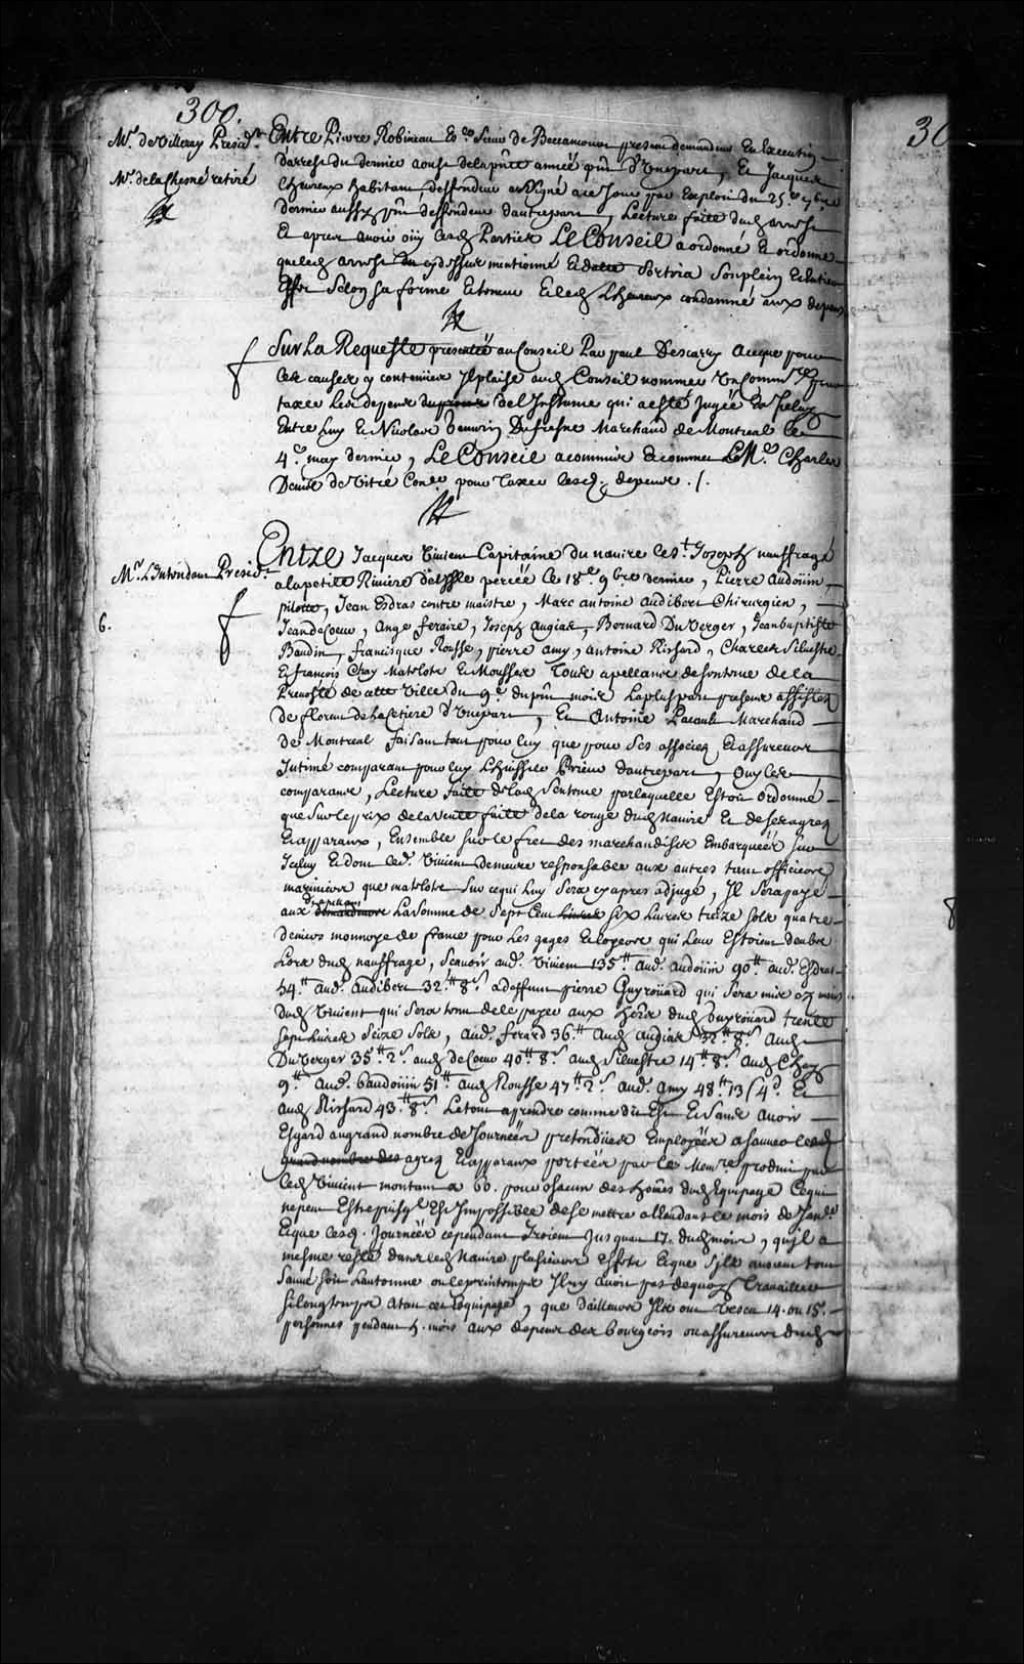 300.
30
Mr. de Villeray Presidt.
Mr. de la Chesné retiré
Entre Pierre Robineau Escer. Sieur de Beccancour present demandeur En Execution
d'arrest du dernier aoust de la pnte année pnt. D'Unepart, Et Jacques
Lheureux habitant, deffendeur assigné a ce Jour par Exploit du 25e. 7bre
dernier aussy pnt. deffendeur d'autrepart, Lecture faite dud. arrest
Et apres avoir oüy lesd. Parties Le Conseil a ordonné Et ordonne
que led. arrest cy dessus mentionné Et datté Sortira Son plein Et Entier
Effet Selon Sa forme Et teneur Et led. Lheureux condamné aux depens
Sur La Requeste presentée au Conseil Par paul Descarry Acceque pour
les causes y contenües Il plaise aud. Conseil nommer Un Commre. pour
taxer les depens de l'Instance qui a esté Jugée En Iceluy
Entre Luy Et Nicolas Dufresne Marchand de Montreal le
4e. may dernier, Le Conseil a commis Et commet Le Me. Charles
Denis de Vitré Conser. pour Taxer lesd. depens ./.
Mr. L'Intendant Presidt.
6.
Entre Jacques Vivien Capitaine du navire le St. Joseph nauffragé
a la petite Riviere de l'Isle percée le 18e. 9bre dernier, Pierre Audoüin,
pilotte, Jean Esdras contre maistre, Marc antoine Audibert Chirurgien,
Jean deCoeur, Ange feraire, Joseph Augias, Bernard DuVerger, Jean baptiste
Baudin, francisque Rousse, pierre amy, antoine Rissard, Charles Silvestre
Et francois Chay Matelots Et Mousses Tous apellans de sentence de la
Prevosté de cette Ville du 9e. du pnt. mois La pluspart presens assistez
de florent de la Cetiere d'Unepart, Et Antoine Pacaud Marchand
de Montreal faisant tant pour luy que pour Ses associez Et assureurs
Intimé comparant pour luy L'huissier Prieur d'autrepart, Ouy les
comparans, Lecture faite de lad. Sentence par laquelle Estoit ordonné
que Sur le prix de la vente faite de la dud. Navire Et de ses agrez
Et apparaux, Ensemble Sur le fret des marchandises Embarquées Sur
Iceluy Et dont led. Vivien demeure responsable aux autres tant officiers
mariniers que matelots Sur ce qui luy Sera cy apres adjugé, Il Sera payé
aux La Somme de Sept Cent six Livres treize sols quatre
deniers monnoye de france pour Les gages Et loyers qui Leur Estoient deubs
Lors dud. nauffrage, Scavoir aud. Vivien 135tt. aud. Audoüin 90tt. aud. Esdras
54tt. aud. Audibert 32tt. 8s. a deffunt pierre Guyroüard qui Sera mise és mains
dud. Vivient qui Sera tenu de le payer aux hers. dud. Guyroüard trente
sept Livres Seize Sols, aud. ferard 36tt. aud. augias 32tt. 8s. aud.
DuVerger 35tt. 2s. aud. de Coeur 40tt. 8s. aud. Silvestre 14tt. 8s. aud. Chay
9tt. aud. baudoüin 51tt. aud. Rousse 47tt. 2s. aud. amy 48tt. 13s 4d. Et
aud. Rissard 43tt. 8s. Le tout a prendre comme dit Est Et Sans Avoir
Esgard au grand nombre de Journées pretendües Employées a sauver lesd.
grand nombre des agrez Et apparaux portées par le Memre. produit par
led. Vivient montant a 60. pour chacun des hom̃es dud. Equipage Ce qui
ne peut Estre puisql. Est Impossible de se mettre a l'eau dans le mois de Janer.
Et que lesd. Journées cependant Iroient Jusquau 17. dud. mois, qu'il a
mesme resté dans led. Navire plusieurs Effets Et que S'ils avoient tout
Sauvé Soit L'automne ou le printemps Il ny avoit pas dequoy Travailler
Si longtemps a tout cet Equipage, que D'ailleurs Ils ont Vescu 14. ou 15.
personnes pendant 5. mois aux depens des bourgeois ou assureurs dud.